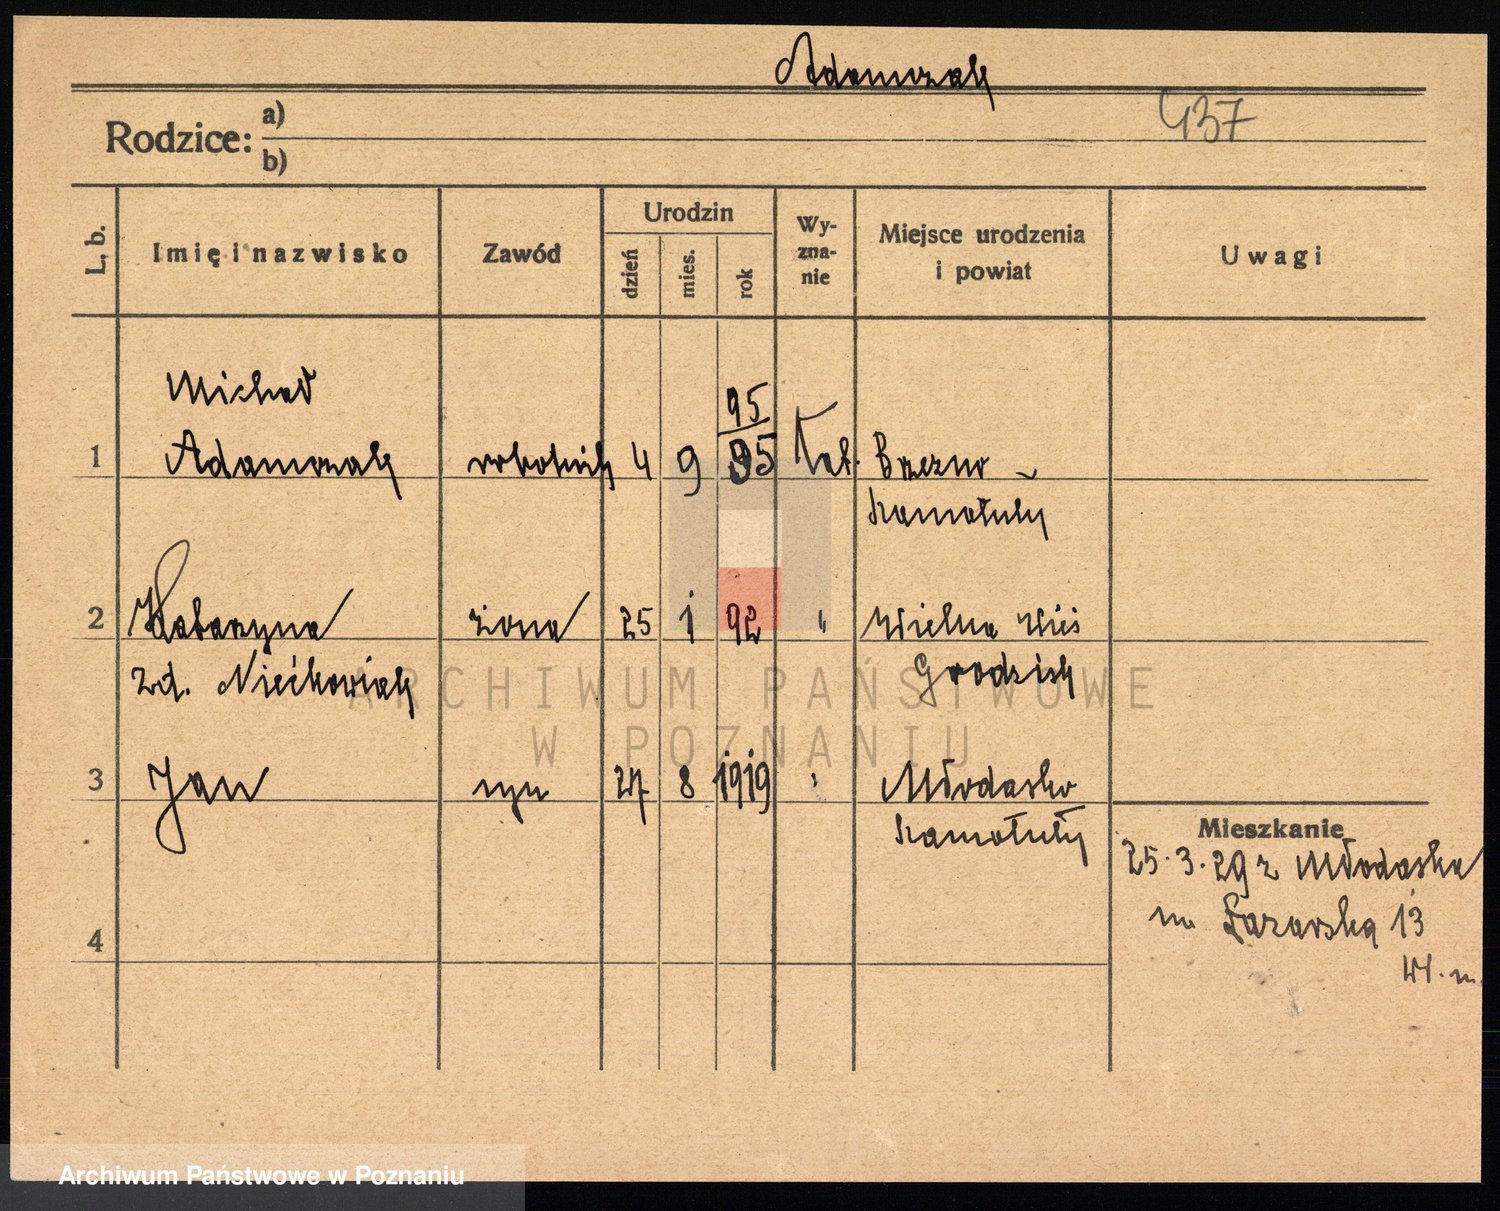 Adamczak
437
Rodzice: a)
b)
L. b.
Imię i nazwisko
Zawód
Urodzin
dzień
mies.
rok
Wy-
zna-
nie
Miejsce urodzenia
i powiat
Uwagi
Michał
95
1 Adamczak robotnik 4 9 95 kat. Brzezno
Szamotuły
2 Katarzyna żona 25 1 92 " Wielka Wieś
zd. Niećkowiak Grodzisk
3 Jan syn 27 8 1919 " Młodasko
Szamotuły
Mieszkanie
25.3.29 z Młodaska
na Łazarska 13
4
W. m.
ARCHIWUM PAŃSTWOWE
W POZNANIU
Archiwum Państwowe w Poznaniu